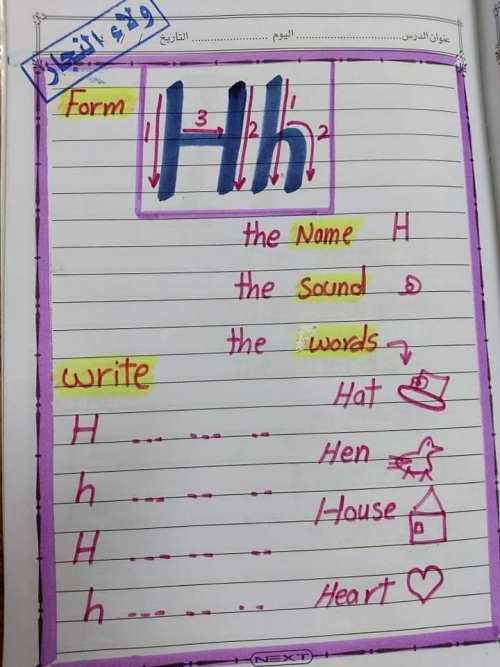 ولاء النجار
عنوان الدرس اليوم التاريخ
Form
Hh
1 3 2 1 2
the Name H
the Sound ه
the words
write
Hat
H
Hen
h
House
H
Heart
h
NEXT